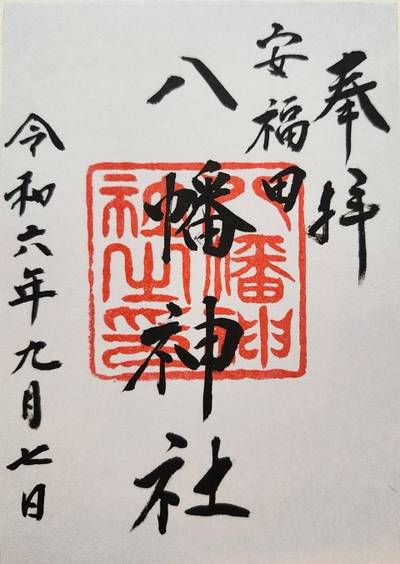 奉拝
安福田
八幡神社
八幡神
社之印
令和六年九月七日